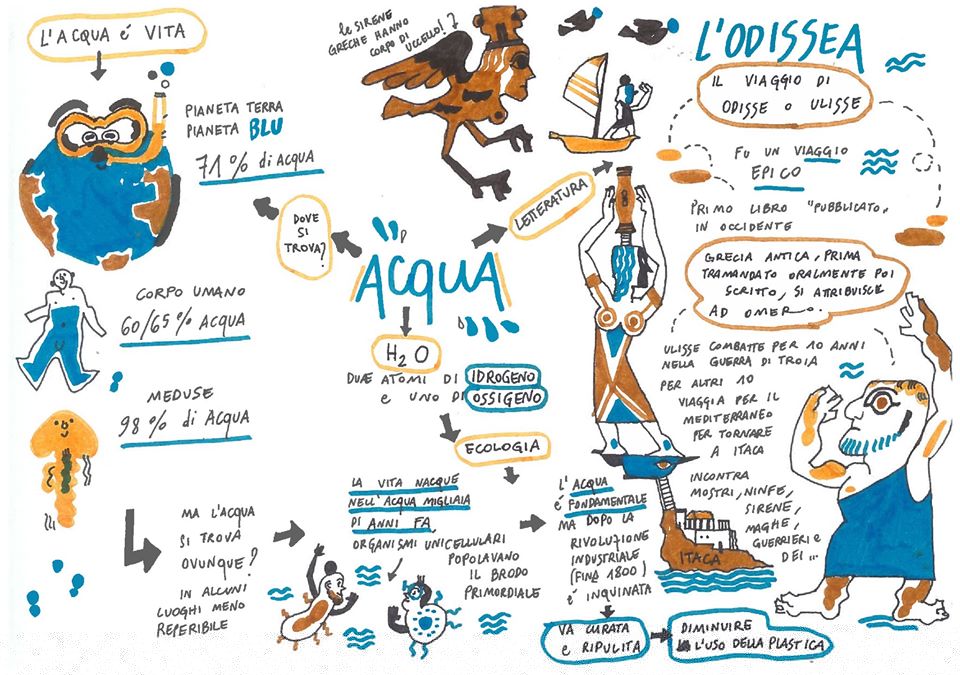 L'ACQUA é VITA
PIANETA TERRA
PIANETA BLU
71% di ACQUA
DOVE
SI
TROVA?
CORPO UMANO
60/65% ACQUA
MEDUSE
98% di ACQUA
MA L'ACQUA
SI TROVA
OVUNQUE?
IN ALCUNI
LUOGHI MENO
REPERIBILE
le SIRENE
GRECHE HANNO
CORPO DI
UCCELLO!?
ACQUA
H2O
DUE ATOMI DI IDROGENO
e UNO DI OSSIGENO
ECOLOGIA
LA VITA NACQUE
NELL'ACQUA MIGLIAIA
DI ANNI FA,
ORGANISMI UNICELLULARI
POPOLAVANO
IL BRODO
PRIMORDIALE
L'ACQUA
é FONDAMENTALE
MA DOPO LA
RIVOLUZIONE
INDUSTRIALE
(FINE 1800)
é INQUINATA
VA CURATA
e RIPULITA
DIMINUIRE
L'USO DELLA PLASTICA
LETTERATURA
L'ODISSEA
IL VIAGGIO DI
ODISSE o ULISSE
FU UN VIAGGIO
EPICO
PRIMO LIBRO "PUBBLICATO"
IN OCCIDENTE
GRECIA ANTICA, PRIMA
TRAMANDATO ORALMENTE POI
SCRITTO, SI ATTRIBUISCE
AD OMERO.
ULISSE COMBATTE PER 10 ANNI
NELLA GUERRA DI TROIA
PER ALTRI 10
VIAGGIA PER IL
MEDITERRANEO
PER TORNARE
A ITACA
INCONTRA
MOSTRI, NINFE,
SIRENE,
MAGHE,
GUERRIERI e
DEI...
ITACA